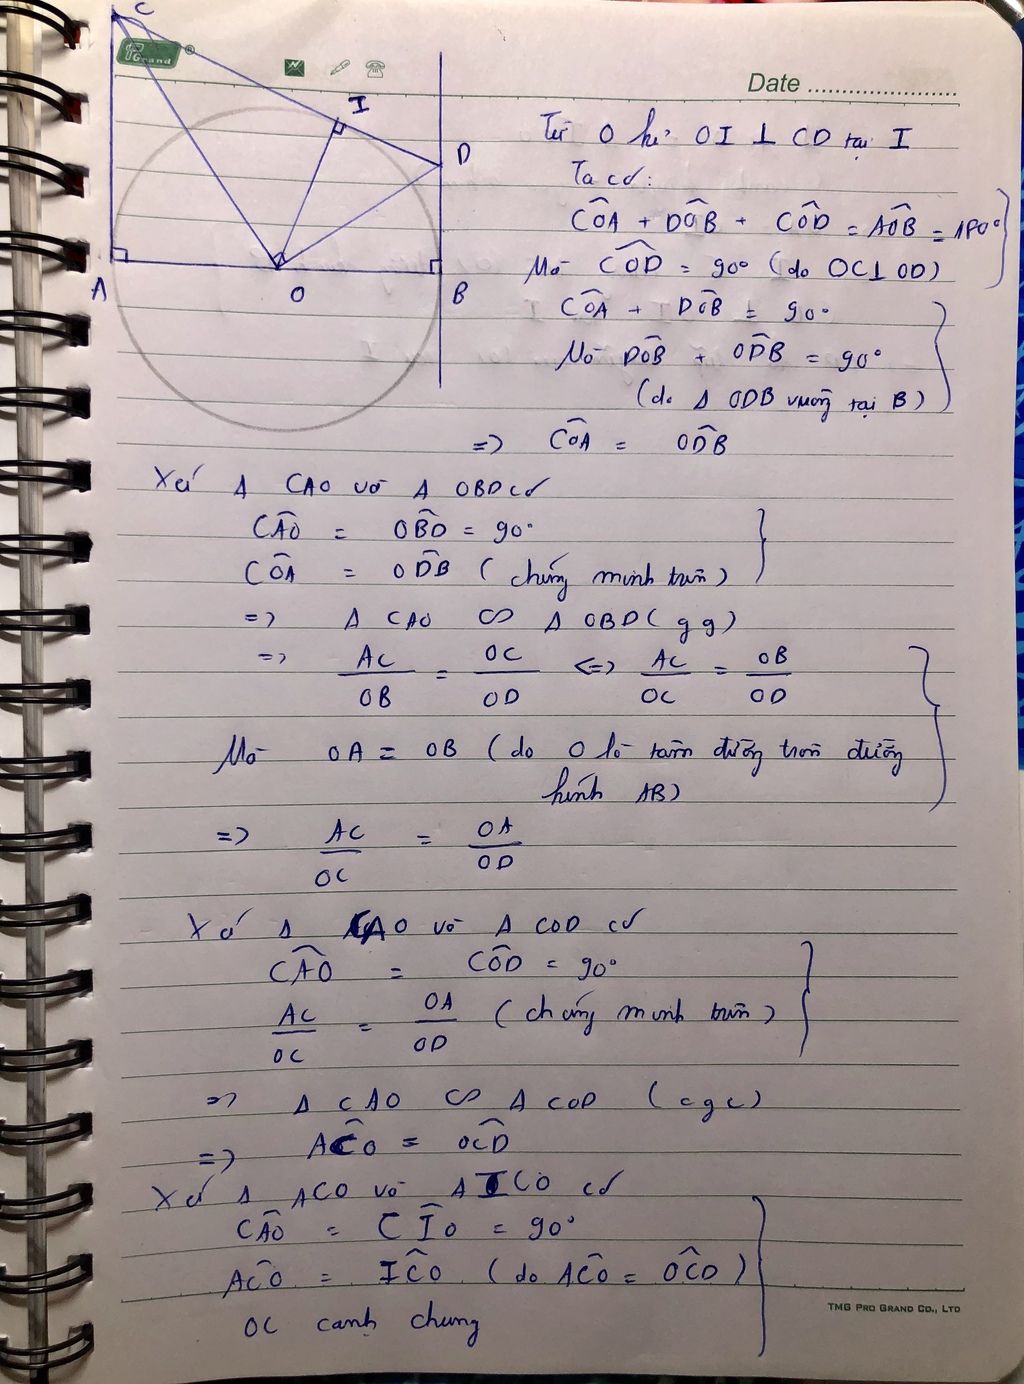 C
Grand
Date
I
D
A
O
B
Từ O kẻ OI ⊥ CD tại I
Ta có:
CÔA + DÔB + CÔD = AÔB = 180°
Mà CÔD = 90° (do OC⊥OD)
CÔA + DÔB = 90°
Mà DÔB + OD̂B = 90°
(do Δ ODB vuông tại B)
=> CÔA = OD̂B
Xét Δ CAO và Δ OBD có
CÂO = OB̂D = 90°
CÔA = OD̂B (chứng minh trên)
=> Δ CAO ∽ Δ OBD (gg)
=> AC/OB = OC/OD <=> AC/OC = OB/OD
Mà OA = OB (do O là tâm đường tròn đường
kính AB)
=> AC/OC = OA/OD
Xét Δ CAO và Δ COD có
CÂO = CÔD = 90°
AC/OC = OA/OD (chứng minh trên)
=> Δ CAO ∽ Δ COD (cgc)
=> AĈO = OĈD
Xét Δ ACO và Δ ICO có
CÂO = CÎO = 90°
AĈO = IĈO (do AĈO = OĈD)
OC cạnh chung
TMG PRO GRAND CO., LTD